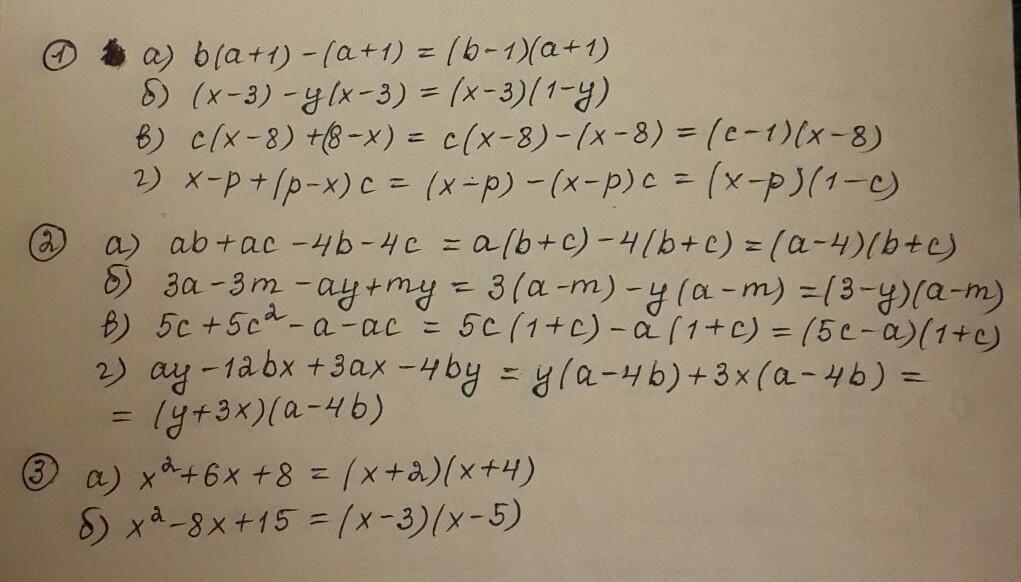 ① а) b(a+1)-(a+1) = (b-1)(a+1)
б) (x-3)-y(x-3) = (x-3)(1-y)
в) c(x-8)+(8-x) = c(x-8)-(x-8) = (c-1)(x-8)
г) x-p+(p-x)c = (x-p)-(x-p)c = (x-p)(1-c)
② а) ab+ac-4b-4c = a(b+c)-4(b+c) = (a-4)(b+c)
б) 3a-3m-ay+my = 3(a-m)-y(a-m) = (3-y)(a-m)
в) 5c+5c²-a-ac = 5c(1+c)-a(1+c) = (5c-a)(1+c)
г) ay-12bx+3ax-4by = y(a-4b)+3x(a-4b) =
= (y+3x)(a-4b)
③ а) x²+6x+8 = (x+2)(x+4)
б) x²-8x+15 = (x-3)(x-5)